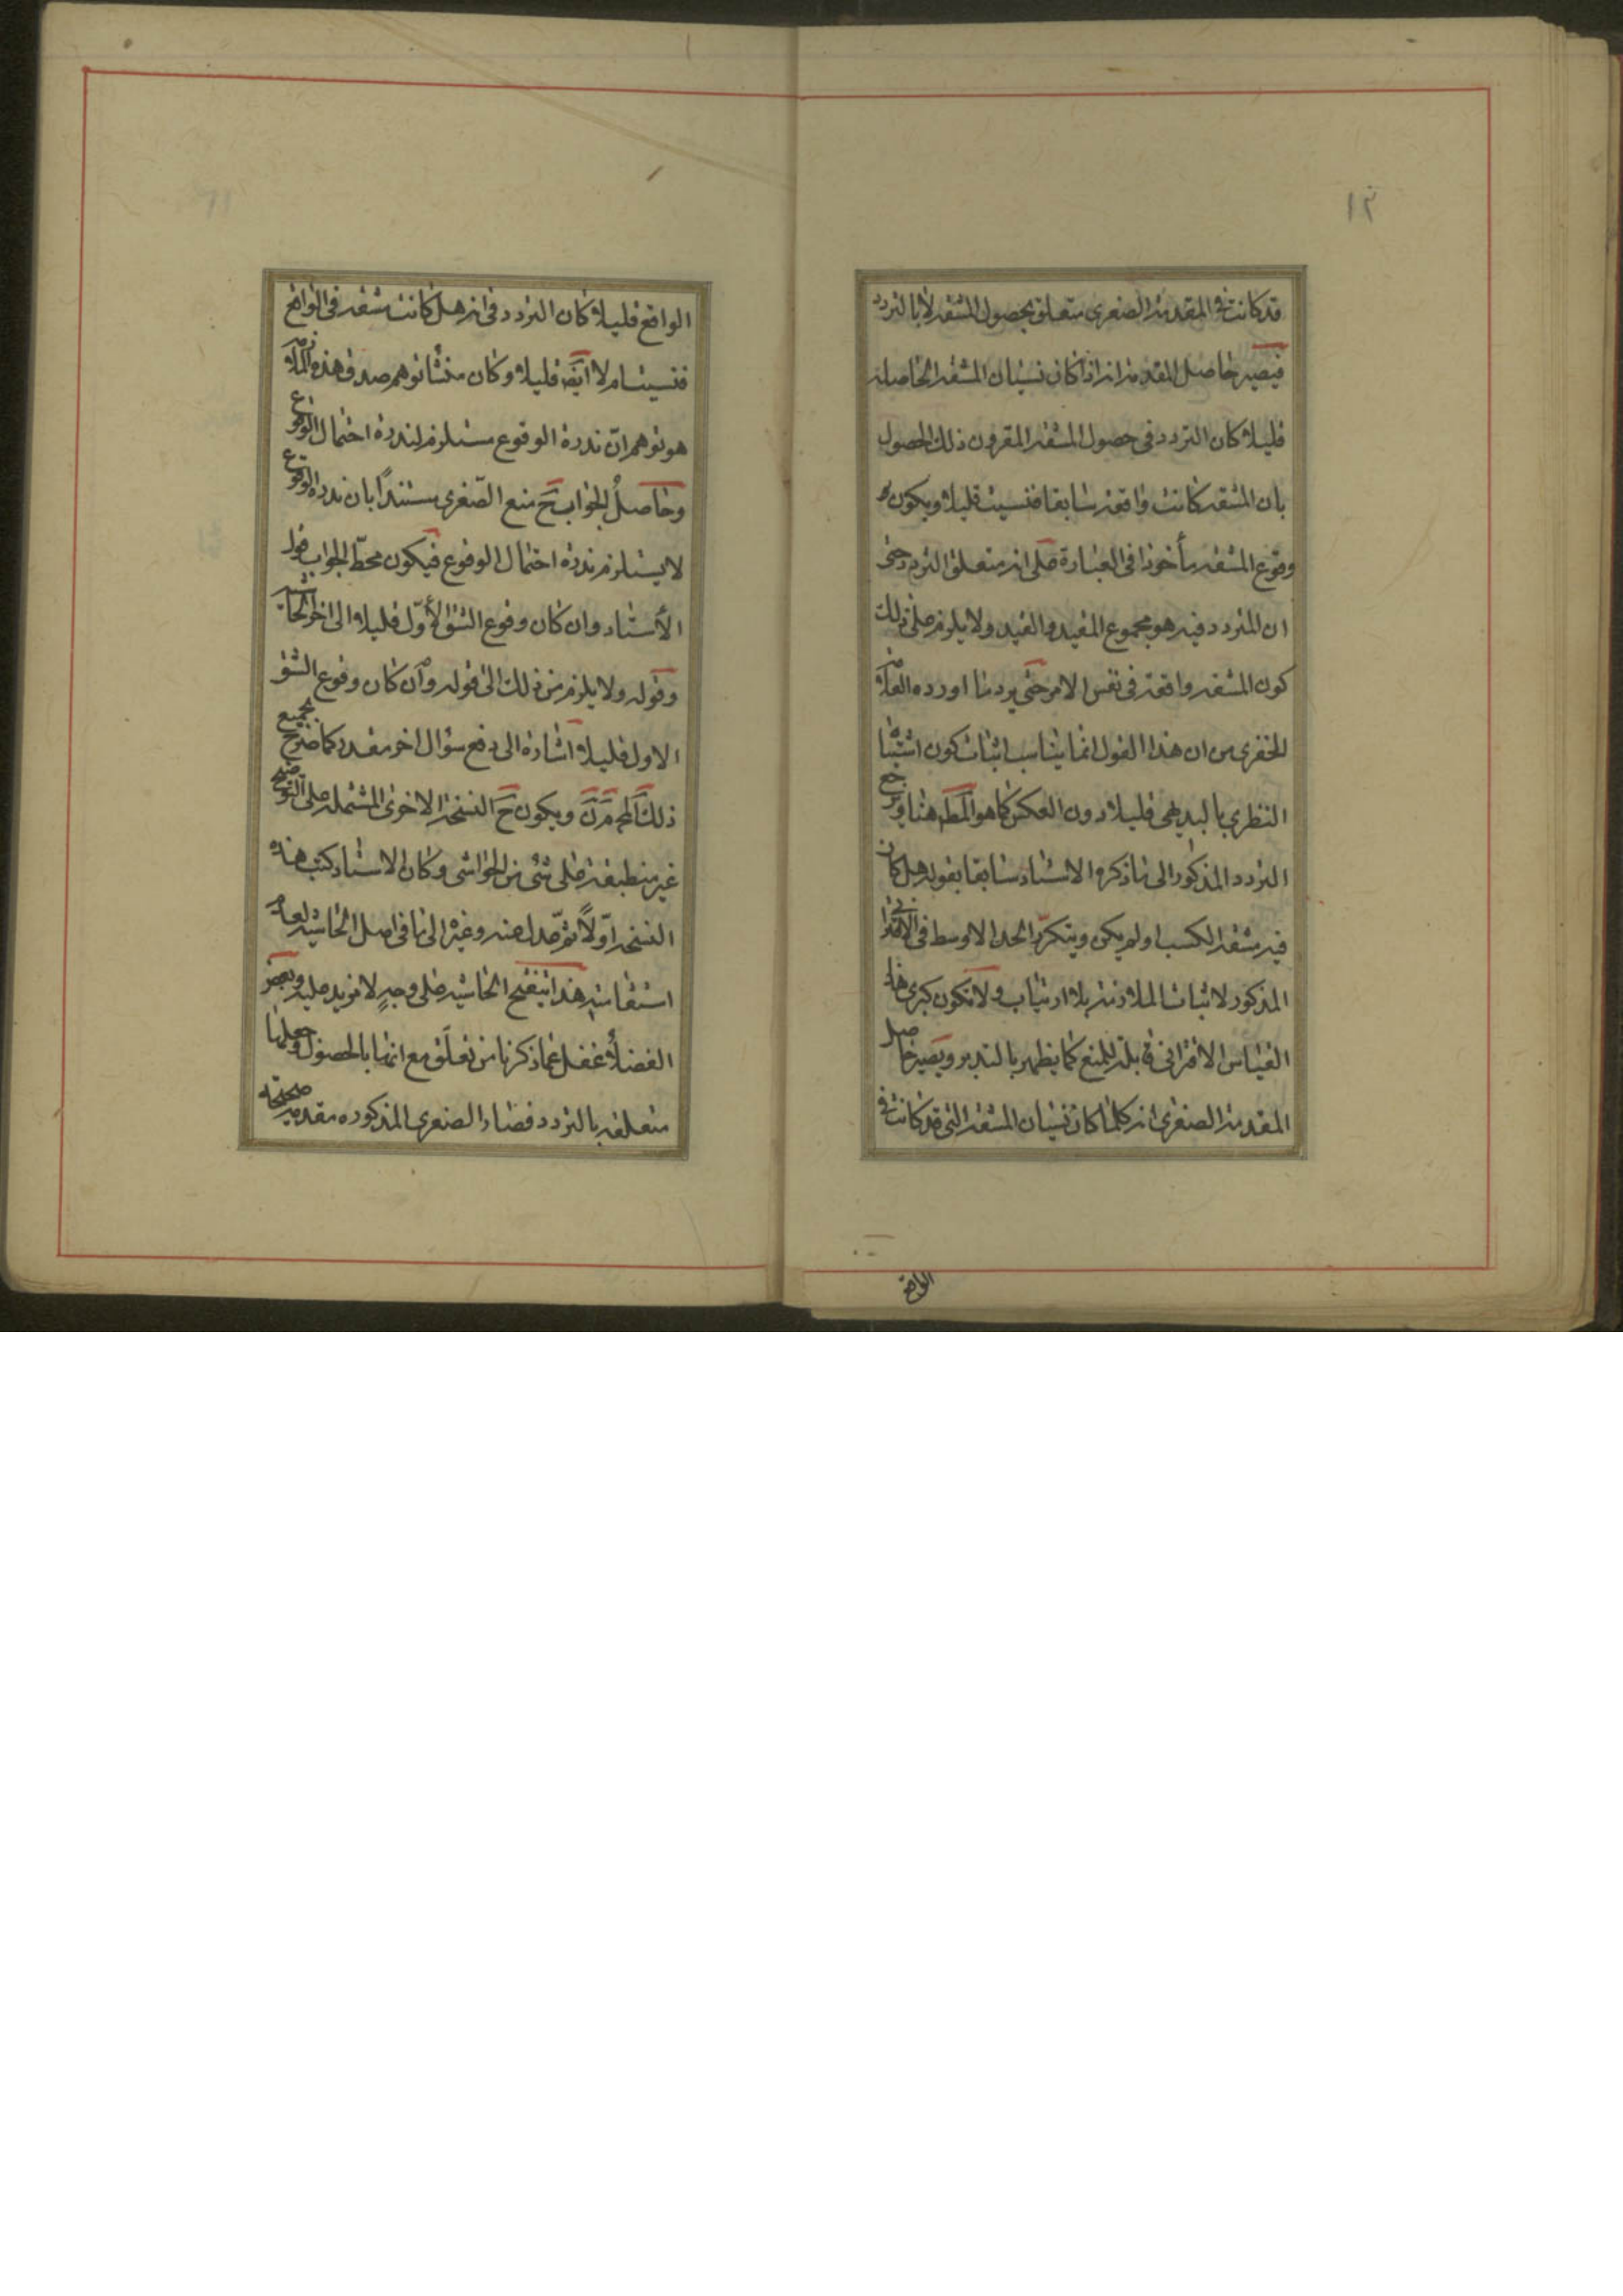 ١٢
قد كانت فى المقدمة الصغرى متعلق بحصول المشقة لا بالتردد
فيصير حاصل المقدمة انه اذا كان نسيان المشقة الحاصلة
قليلا كان التردد فى حصول المشقة المقرون ذلك الحصول
بان المشقة كانت واقعة سابقا فنسيت قليلا ويكون
وقوع المشقة مأخوذا فى العبارة على انه متعلق التردد حتى
ان المتردد فيه هو مجموع المقيد والقيد ولا يلزم على ذلك
كون المشقة واقعة فى نفس الامر حتى يرد ما اورده العلامة
الخفرى من ان هذا القول انما يناسب اثبات كون اشتباه
النظرى بالبديهى قليلا دون العكس كما هو المط هنا ويرجع
التردد المذكور الى ما ذكره الاستاد سابقا بقوله هل كان
فيه مشقة الكسب او لم يكن ويتكرر الحد الاوسط فى الاقترانى
المذكور لاثبات الملازمة بلا ارتياب ولا تكون كبرى هذا
القياس الاقترانى قابلة للمنع كما يظهر بالتدبر ويصير حاصل
المقدمة الصغرى انه كلما كان نسيان المشقة التى قد كانت فى
الواقع
الواقع قليلا كان التردد فى انه هل كانت مشقة فى الواقع
فنسيت ام لا ايضَ قليلا وكان منشأ توهم صدق هذه الملازمة
هو توهم ان ندرة الوقوع مستلزم لندرة احتمال الوقوع
وحاصل الجواب حَ منع الصغرى مستندًا بان ندرة الوقوع
لا يستلزم ندرة احتمال الوقوع فيكون محطّ الجواب قول
الأستاد وان كان وقوع الشق الأوّل قليلا الى اخر الحاشية
وقوله ولا يلزم من ذلك الى قوله وان كان وقوع الشق
الاول قليلا اشارة الى دفع سؤال اخر مقدر كما صرح بجميع
ذلك المحَ مرَّ ويكون حَ النسخة الاخرى المشتملة على التوضيح
غير منطبقة على شئ من الحواشى وكان الاستاد كتب هذه
النسخة اوّلاً ثم عدل عنه وغيره الى ما فى اصل الحاشية لعدم
استقامته هذا تنقيح الحاشية على وجهٍ لا مزيد عليه وبعض
الفضلأ غفل عما ذكرنا من تعلّق مع انها بالحصول وجعلها
متعلقة بالتردد فصار الصغرى المذكوره مقدمة صحيحة